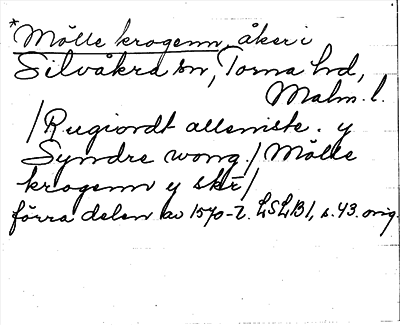 *Mölle krogenn, åker i
Silvåkra sn, Torna hd,
Malm. l.
/Rugiordt allemiste. y
Syndre wong./ Mölle
krogenn y skr/
förra delen av 1570-t. LSLB1, s. 43. orig.